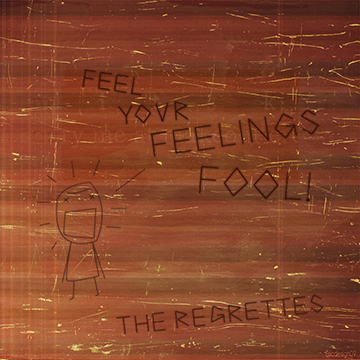 FEEL
YOUR
FEELINGS
FOOL!
THE REGRETTES